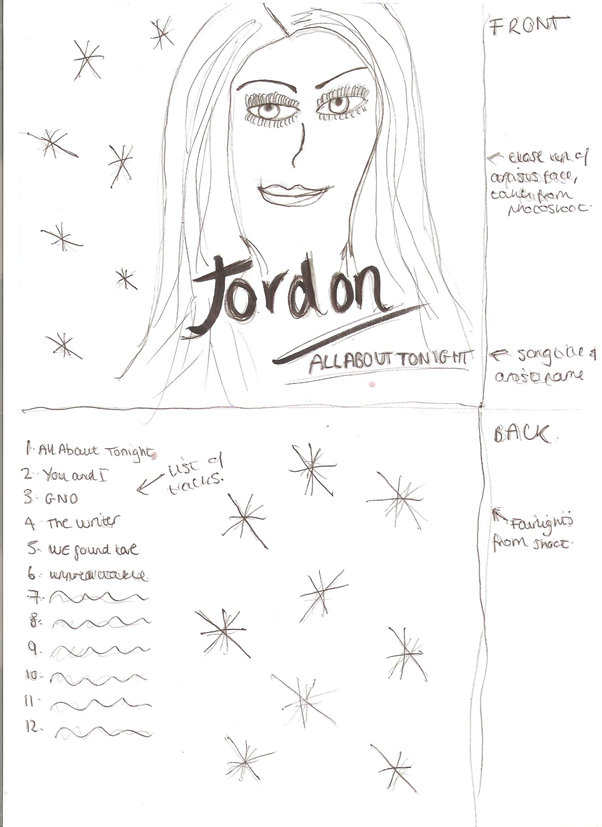 FRONT
← close up of
artists face,
taken from
photoshoot.
Jordon
ALL ABOUT TONIGHT
← song title &
artist name
BACK.
1. All About Tonight
2. You and I
3. GNO
4. The writer
5. WE found love
6.
7.
8.
9.
10.
11.
12.
← List of
tracks.
Fairlights
from shoot.